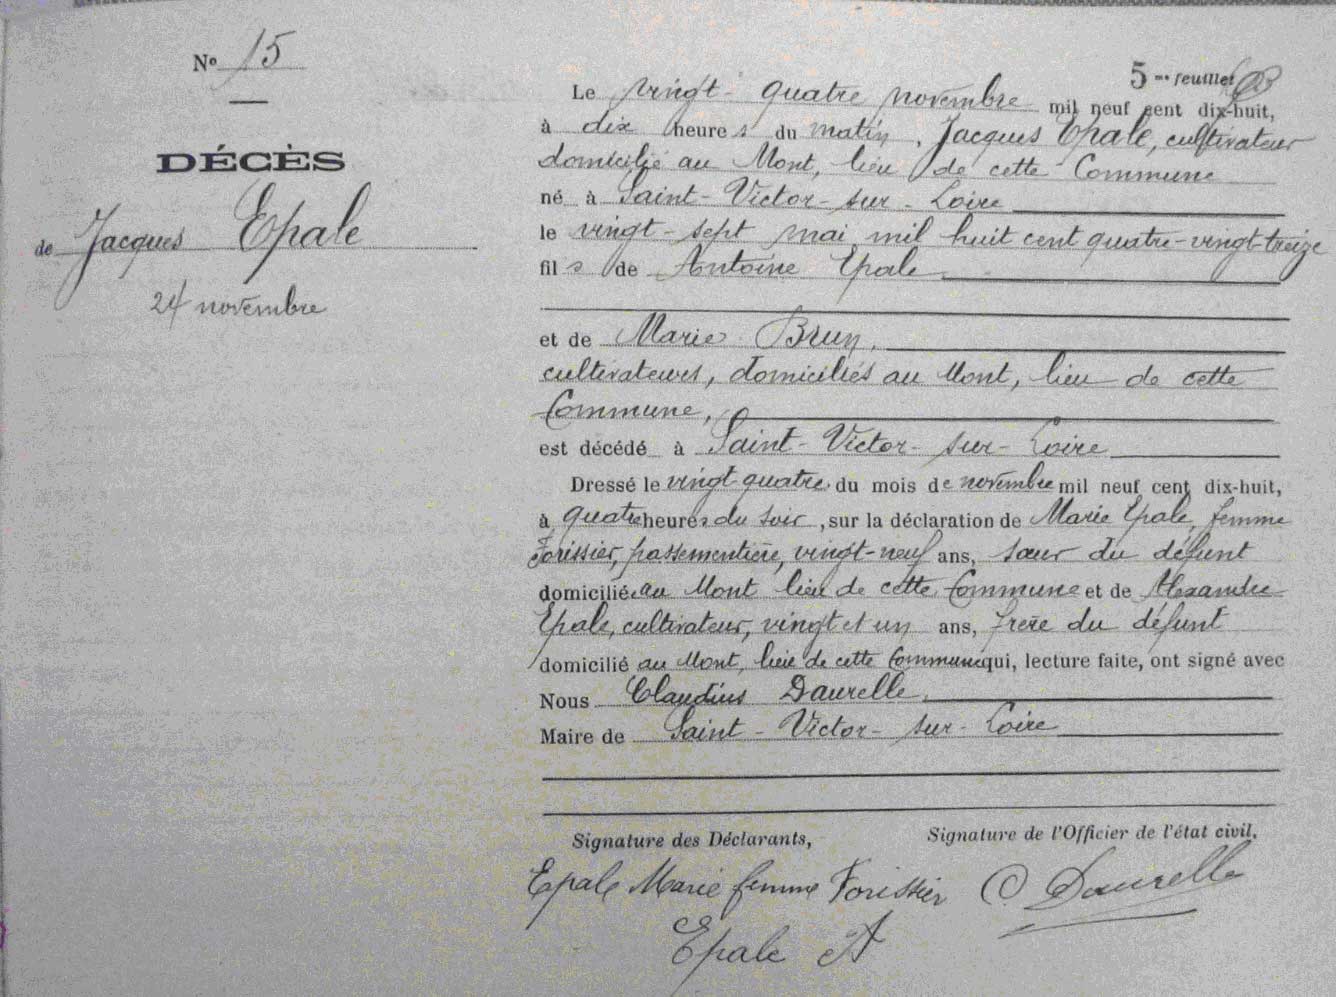 Nº 15
DÉCÈS
de Jacques Epale
24 novembre
5me feuillet
Le vingt-quatre novembre mil neuf cent dix-huit,
à dix heures du matin, Jacques Epale, cultivateur
domicilié au Mont, lieu de cette Commune
né à Saint-Victor-sur-Loire
le vingt-sept mai mil huit cent quatre-vingt-treize
fils de Antoine Epale
et de Marie Brun,
cultivateurs, domiciliés au Mont, lieu de cette
Commune,
est décédé à Saint-Victor-sur-Loire
Dressé le vingt quatre du mois de novembre mil neuf cent dix-huit,
à quatre heures du soir, sur la déclaration de Marie Epale, femme
Forissier, passementière, vingt-neuf ans, sœur du défunt
domiciliée au Mont lieu de cette Commune et de Alexandre
Epale, cultivateur, vingt et un ans, frère du défunt
domicilié au Mont, lieu de cette Commune qui, lecture faite, ont signé avec
Nous Claudius Daurelle,
Maire de Saint-Victor-sur-Loire
Signature des Déclarants,
Signature de l'Officier de l'état civil,
Epale Marie femme Forissier
C Daurelle
Epale A